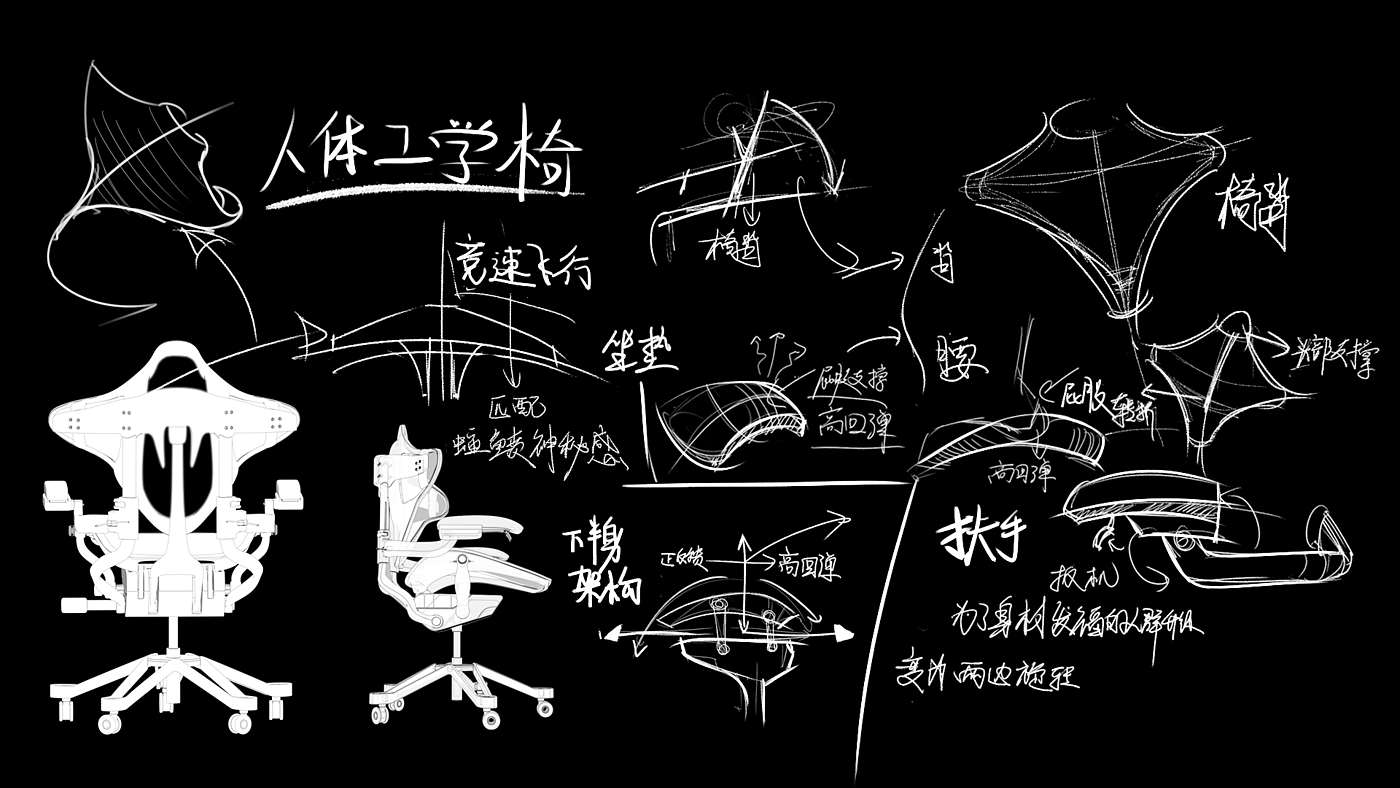 人体工学椅
竞速飞行
匹配
蝠鲼神秘感
椅背
背
腰
椅背
头部支撑
坐垫
屁股支撑
高回弹
屁股
转折
高回弹
下半身
架构
高回弹
扶手
扳机
为了身材发福的人群升级
变为两边旋转